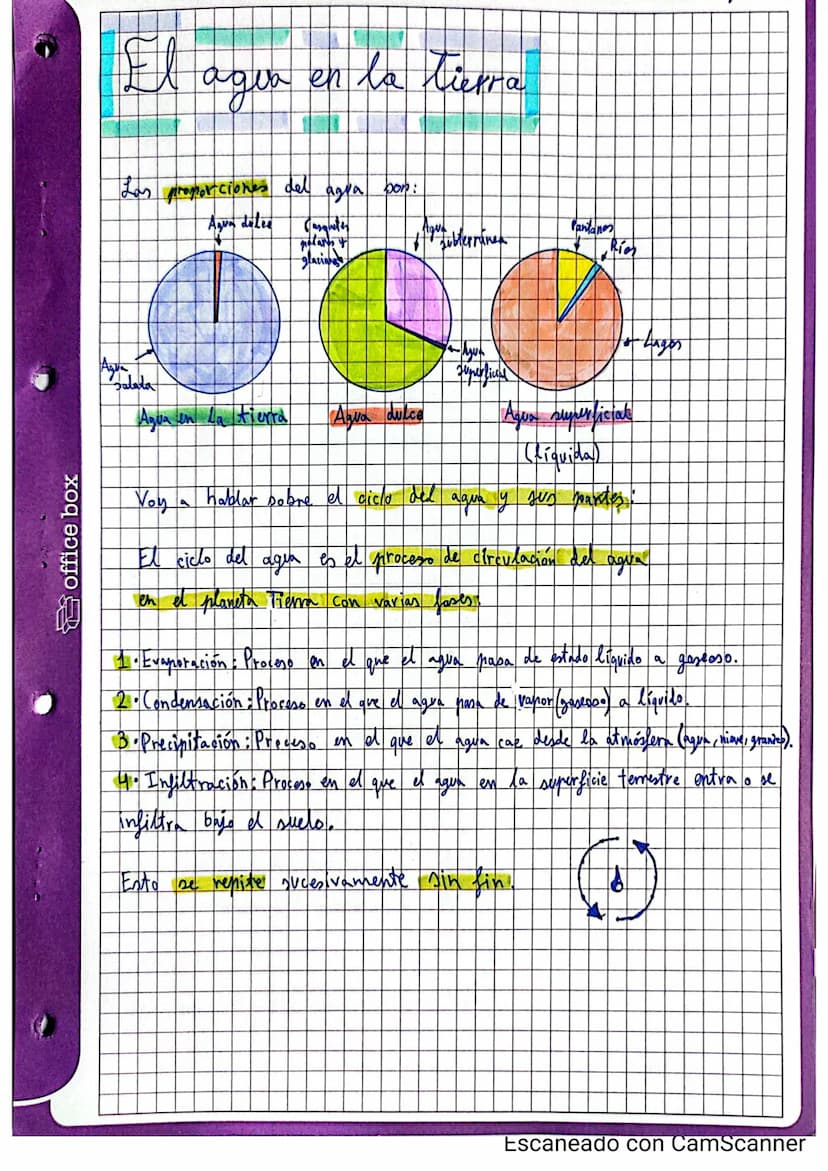 El agua en la Tierra
Las proporciones del agua son:
Agua dulce
Casquetes
polares y
glaciares
Agua
subterránea
Pantanos
Ríos
Agua
salada
Agua
superficial
Lagos
Agua en la tierra
Agua dulce
Agua superficial
(líquida)
Voy a hablar sobre el ciclo del agua y sus partes:
El ciclo del agua es el proceso de circulación del agua
en el planeta Tierra con varias fases:
1·Evaporación: Proceso en el que el agua pasa de estado líquido a gaseoso.
2·Condensación: Proceso en el que el agua pasa de vapor (gaseoso) a líquido.
3·Precipitación: Proceso en el que el agua cae desde la atmósfera (agua, nieve, granizo).
4· Infiltración: Proceso en el que el agua en la superficie terrestre entra o se
infiltra bajo el suelo.
Esto se repite sucesivamente sin fin.
office box
Escaneado con CamScanner